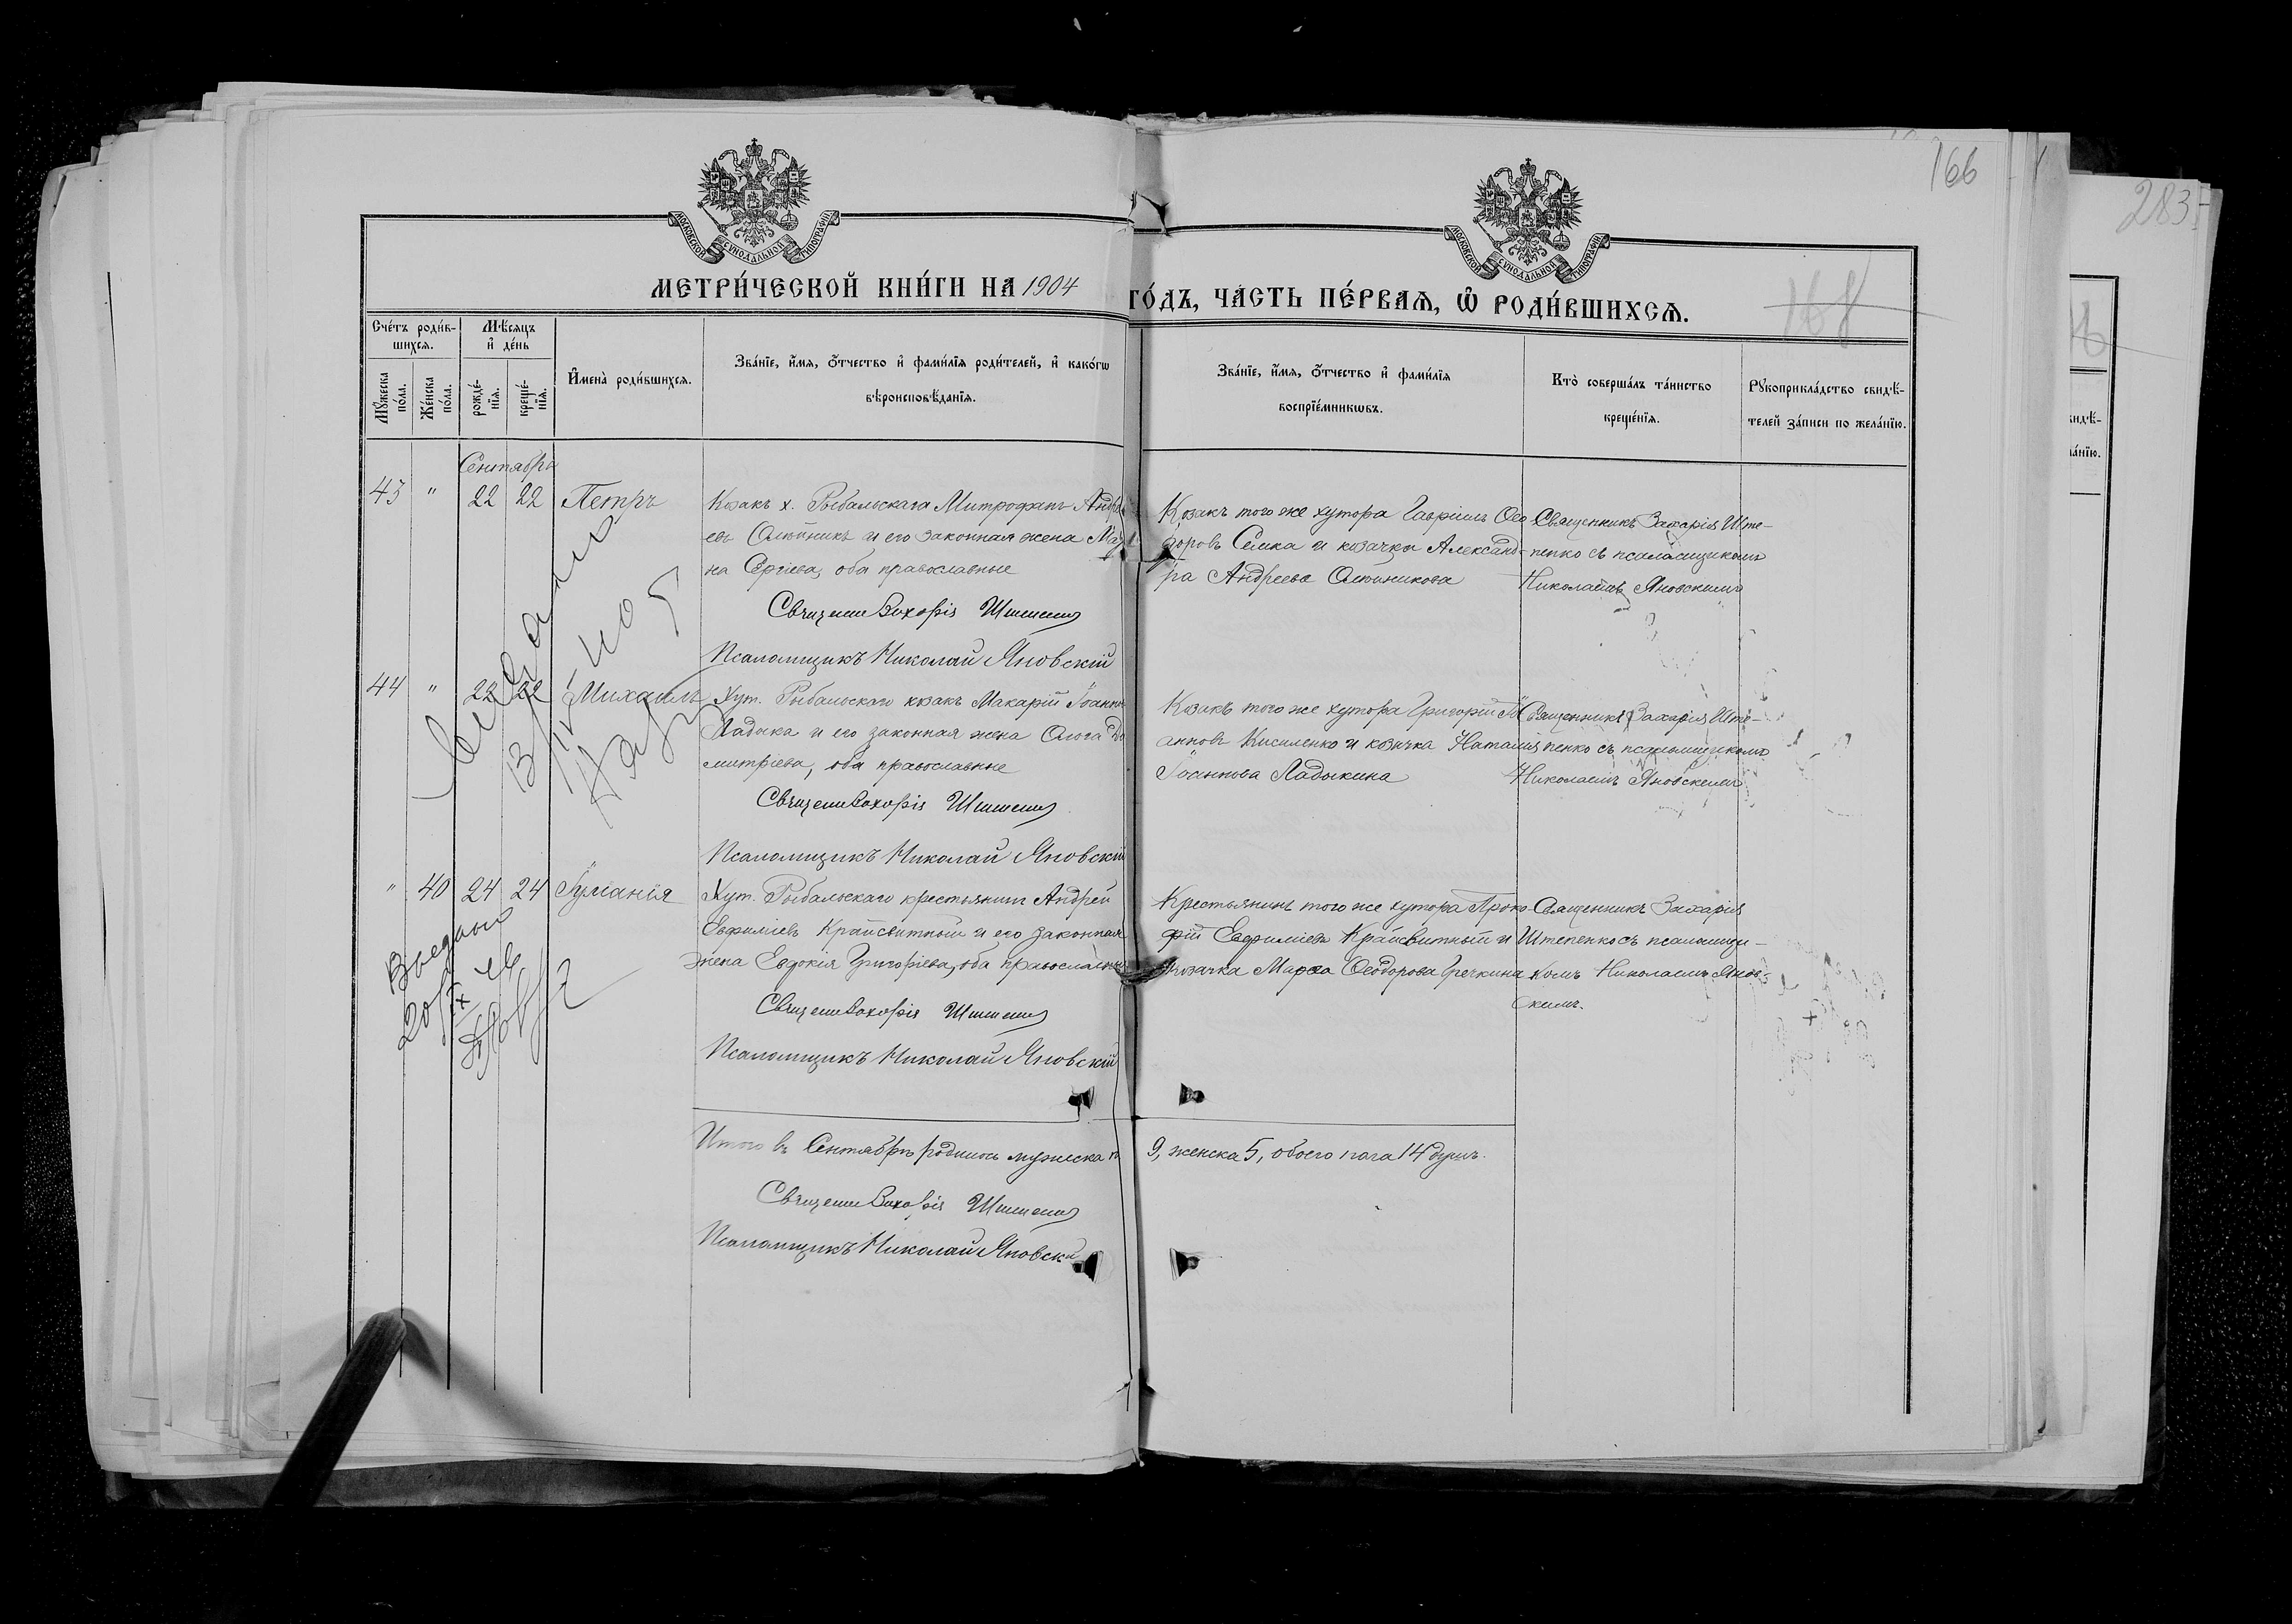 166
283
МОСКОВСКОЙ СѴНОДАЛЬНОЙ ТИПОГРАФІИ
МОСКОВСКОЙ СѴНОДАЛЬНОЙ ТИПОГРАФІИ
МЕТРИ́ЧЕСКОЙ КНИ́ГИ НА 1904 ГО́ДЪ, ЧА́СТЬ ПЕ́РВАѦ, Ѡ҆ РОДИ́ВШИХСѦ.
168
Сче́тъ роди́в-
шихсѧ.
Мѣ́сѧцъ
и҆ де́нь
Мꙋ́жеска
по́ла.
Же́нска
по́ла.
рожде́-
нїѧ.
креще́-
нїѧ.
И҆мена̀ роди́вшихсѧ.
Зва́нїе, и҆́мѧ, о҆́тчество и҆ фами́лїѧ роди́телей, и҆ како́гѡ
вѣроисповѣ́данїѧ.
Зва́нїе, и҆́мѧ, о҆́тчество и҆ фами́лїѧ
воспрїе́мникѡвъ.
Кто̀ соверша́лъ та́инство
креще́нїѧ.
Рꙋкоприкла́дство свидѣ́-
телей за́писи по жела́нїю.
Сентябрь
43 " 22 22 Петръ
Козакъ х. Рыбальскаго Митрофанъ Андре
евъ Олейникъ и его законная жена Ма
на Сергіева, оба православные
Священ Захарія Штепенко
Псаломщикъ Николай Яновскій
Козакъ того же хутора Гавріилъ Ѳео
доровъ Семка и козачка Александ-
ра Андреева Олейникова
Священникъ Захарія Ште-
пенко съ псаломщикомъ
Николаемъ Яновскимъ
44 " 22 22 Михаилъ
Хут. Рыбальскаго козакъ Макарій Іоанно
Ладыка и его законная жена Ольга Ди
митріева, оба православные
Священ Захарія Штепенко
Псаломщикъ Николай Яновскій
Козакъ того же хутора Григорій Іо
анновъ Кисиленко и козачка Наталія
Іоаннова Ладыкина
Священникъ Захарія Ште-
пенко съ псаломщикомъ
Николаемъ Яновскимъ
" 40 24 24 Іуліанія
Хут. Рыбальскаго крестьянинъ Андрей
Евфиміевъ Крайсвитный и его законная
жена Евдокія Григоріева, оба православные
Священ Захарія Штепенко
Псаломщикъ Николай Яновскій
Крестьянинъ того же хутора Проко
фій Евфиміевъ Крайсвитный и
козачка Марѳа Ѳеодорова Гречкина
Священникъ Захарія
Штепенко съ псаломщи-
комъ Николаемъ Янов-
скимъ.
Итого въ Сентябрѣ родилось мужеска п 9, женска 5, обоего пола 14 душъ.
Священ Захарія Штепенко
Псаломщикъ Николай Яновскі